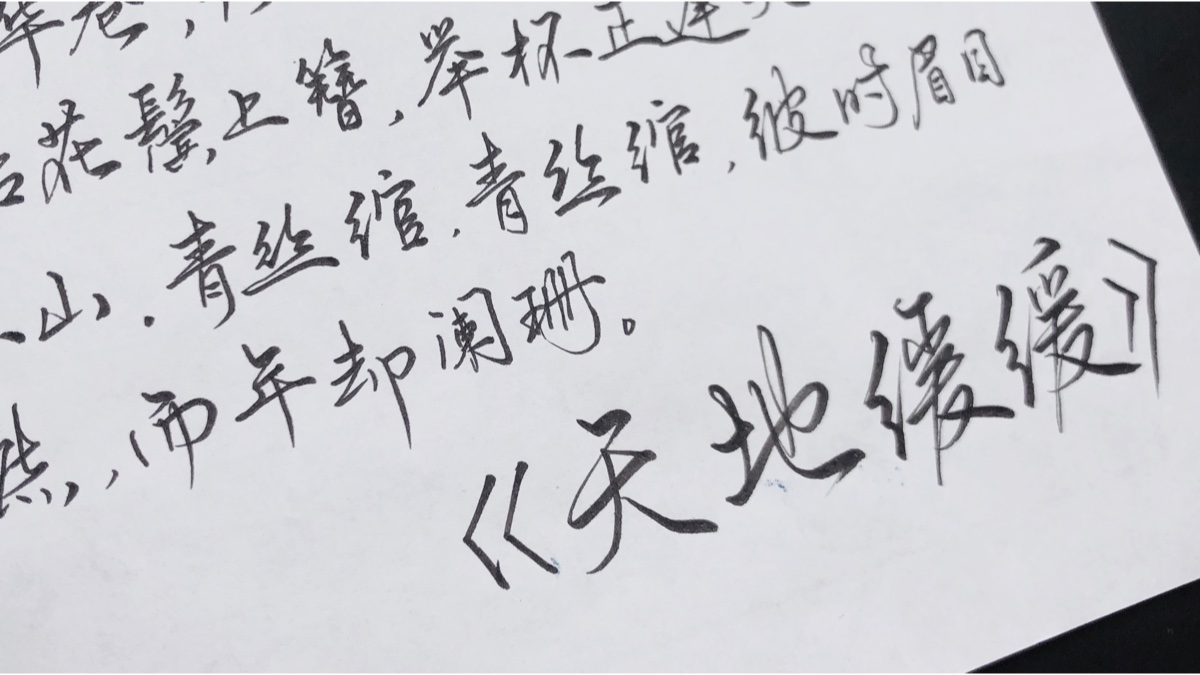 华苍,
在鬓上簪,举杯正逢
山.青丝绾.青丝绾,彼时眉目
然,而年却阑珊。
《天地缓缓》